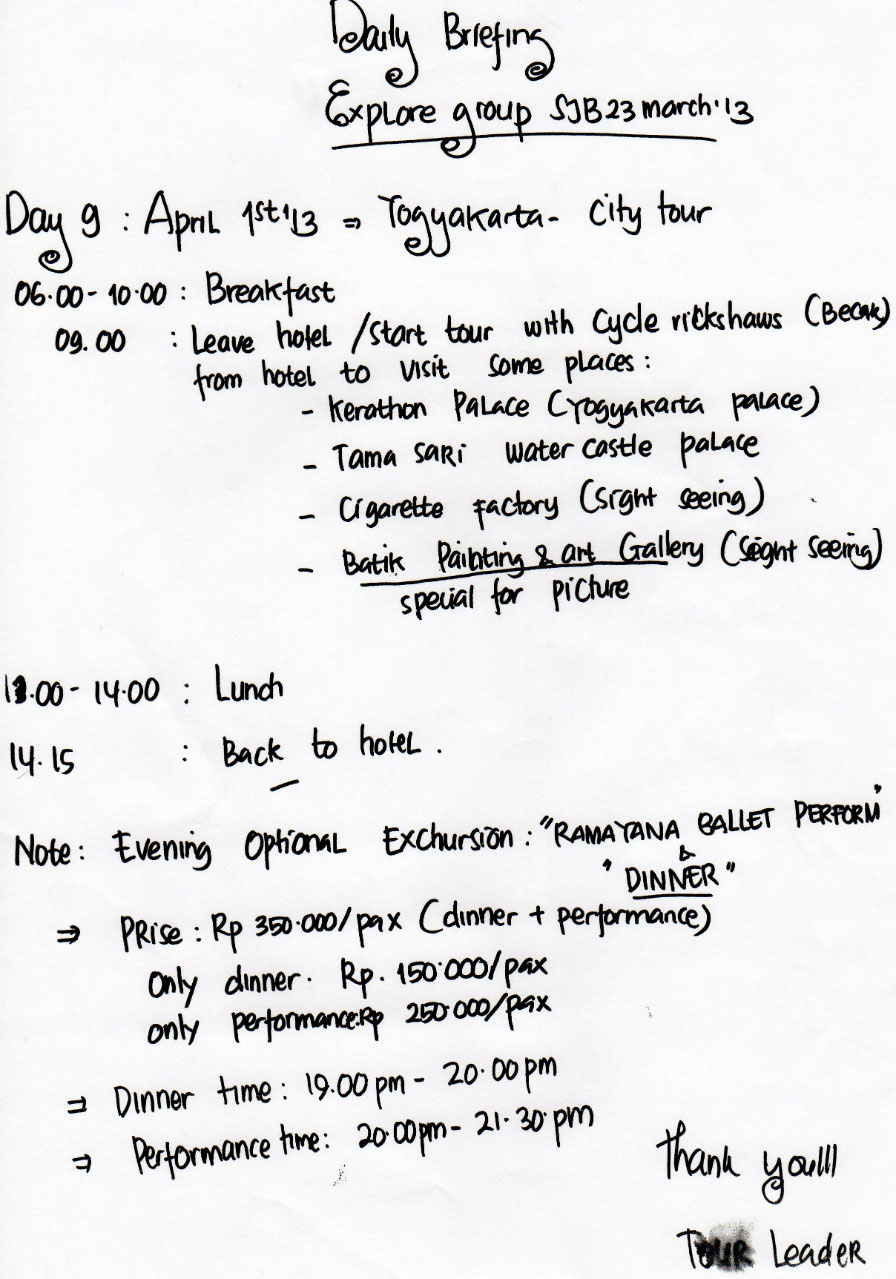 Daily Briefing
Explore group SJB 23 march '13
Day 9 : April 1st '13 ⇒ Yogyakarta - City tour
06.00 - 10.00 : Breakfast
09.00 : Leave hotel / Start tour with Cycle rickshaws (Becak)
from hotel to visit some places :
- Kerathon Palace (Yogyakarta palace)
- Tama Sari water castle palace
- Cigarette Factory (Sight seeing)
- Batik Painting & art Gallery (Seight Seeing)
special for picture
13.00 - 14.00 : Lunch
14.15 : Back to hotel .
Note : Evening Optional Exchursion : "RAMAYANA BALLET PERFORM"
&
"DINNER"
⇒ PRise : Rp 350.000/pax (dinner + performance)
Only dinner . Rp. 150.000/pax
only performance : Rp 250.000/pax
⇒ Dinner time : 19.00 pm - 20.00 pm
⇒ Performance time : 20.00 pm - 21.30 pm
Thank you!!!
TOUR Leader